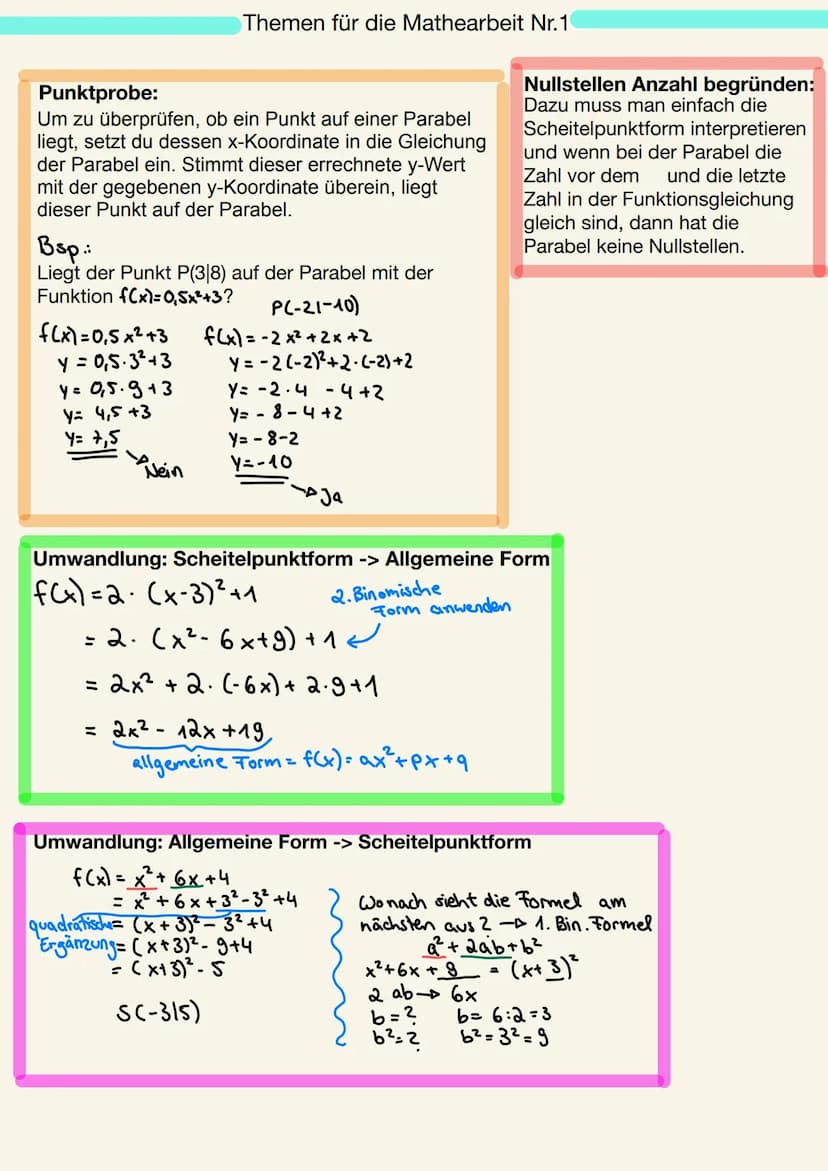 Themen für die Mathearbeit Nr.1
Punktprobe:
Um zu überprüfen, ob ein Punkt auf einer Parabel
liegt, setzt du dessen x-Koordinate in die Gleichung
der Parabel ein. Stimmt dieser errechnete y-Wert
mit der gegebenen y-Koordinate überein, liegt
dieser Punkt auf der Parabel.
Bsp.:
Liegt der Punkt P(3|8) auf der Parabel mit der
Funktion f(x)=0,5x²+3?
f(x)=0,5x²+3
y = 0,5·3²+3
y= 0,5·9+3
y= 4,5+3
y= 7,5
Nein
P(-2|-10)
f(x)= -2x²+2x+2
y= -2(-2)²+2·(-2)+2
y= -2·4 -4+2
y= -8-4+2
y= -8-2
y=-10
Ja
Nullstellen Anzahl begründen:
Dazu muss man einfach die
Scheitelpunktform interpretieren
und wenn bei der Parabel die
Zahl vor dem und die letzte
Zahl in der Funktionsgleichung
gleich sind, dann hat die
Parabel keine Nullstellen.
Umwandlung: Scheitelpunktform -> Allgemeine Form
f(x)=2·(x-3)²+1
2. Binomische
Form anwenden
= 2·(x²-6x+9)+1
= 2x²+2·(-6x)+2·9+1
= 2x²-12x+19
allgemeine Form = f(x)= ax²+px+q
Umwandlung: Allgemeine Form -> Scheitelpunktform
f(x)= x²+6x+4
= x²+6x+3²-3²+4
quadratische = (x+3)²-3²+4
Ergänzung = (x+3)²-9+4
= (x+3)²-5
S(-3|5)
Wonach sieht die Formel am
nächsten aus? → 1. Bin. Formel
a²+2ab+b²
x²+6x+9 = (x+3)²
2ab→ 6x
b=? b= 6:2=3
b²=? b²=3²=9